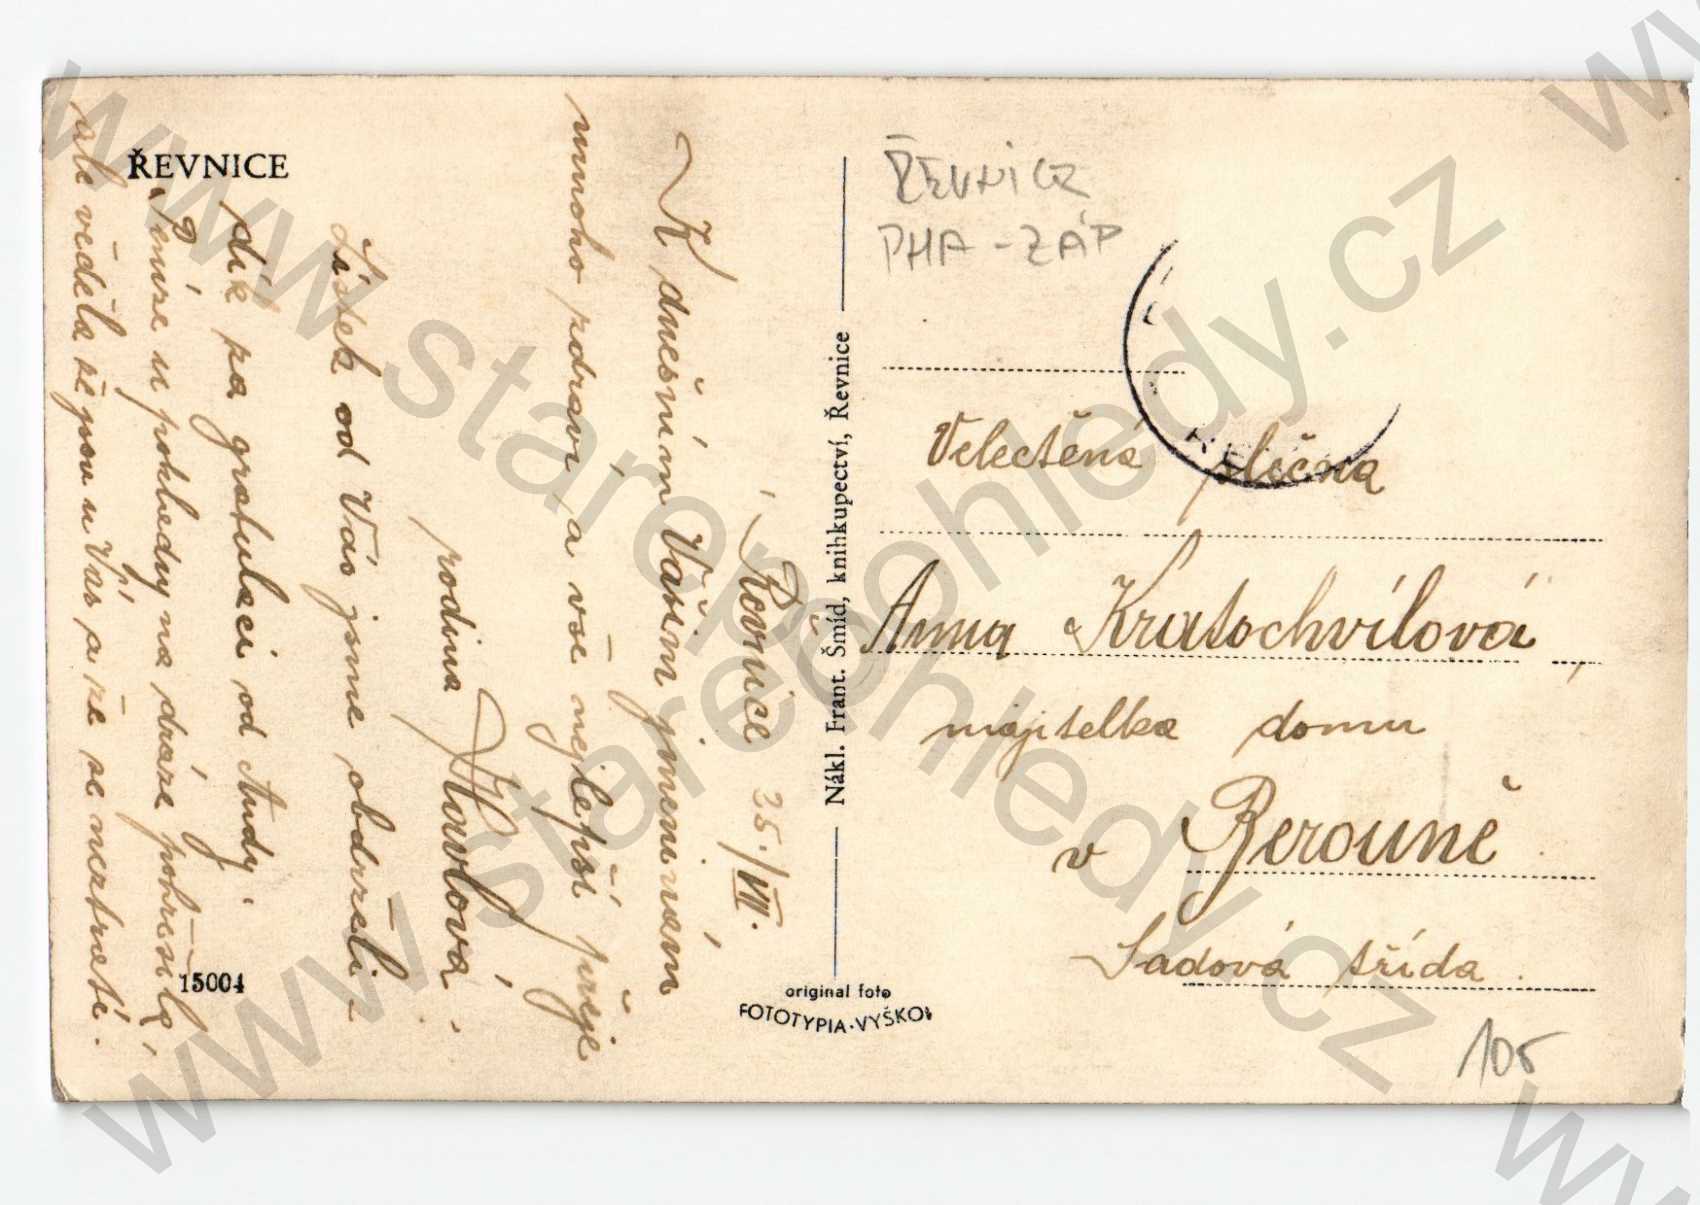 ŘEVNICE
Řevnice 25./VII.
K dnešním Vašim jmeninám
mnoho zdraví a vše nejlepší přeje
rodina Havlová.
Lístek od Vás jsme obdrželi -
dík za gratulaci od Andy.
peníze u pohledny na dráze pohřešila
ale věděla že jsou u Vás a že se neztratí.
15004
Nákl. Frant. Šmíd, knihkupectví, Řevnice
original foto
FOTOTYPIA-VYŠKOV
ŘEVNICE
PHA-ZÁP
Velectěná slečna
Anna Kratochvílová
majitelka domu
v Berouně
Sadová třída.
105
www.starepohledy.cz
www.starepohledy.cz